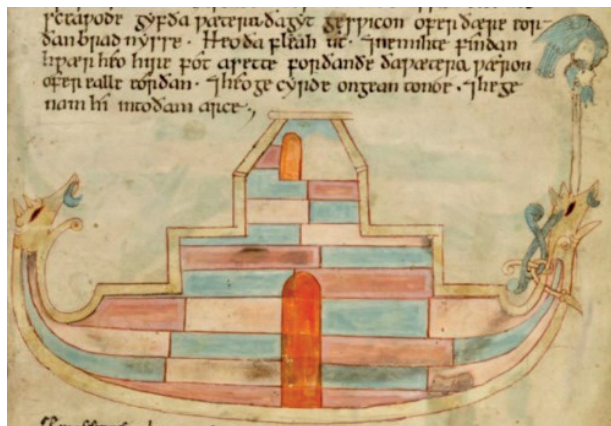 sceaƿode gyf ða ƿætera ða gyt gesƿicon ofer ðære eor-
ðan bradnysse. Heo ða fleah ut. ⁊ ne mihte findan
hƿær heo hire fot asette forðan ðe ða ƿætera ƿæron
ofer ealle eorðan. ⁊ heo gecyrde ongean to noe. ⁊ he ge
nam hi in to ðam arce.,